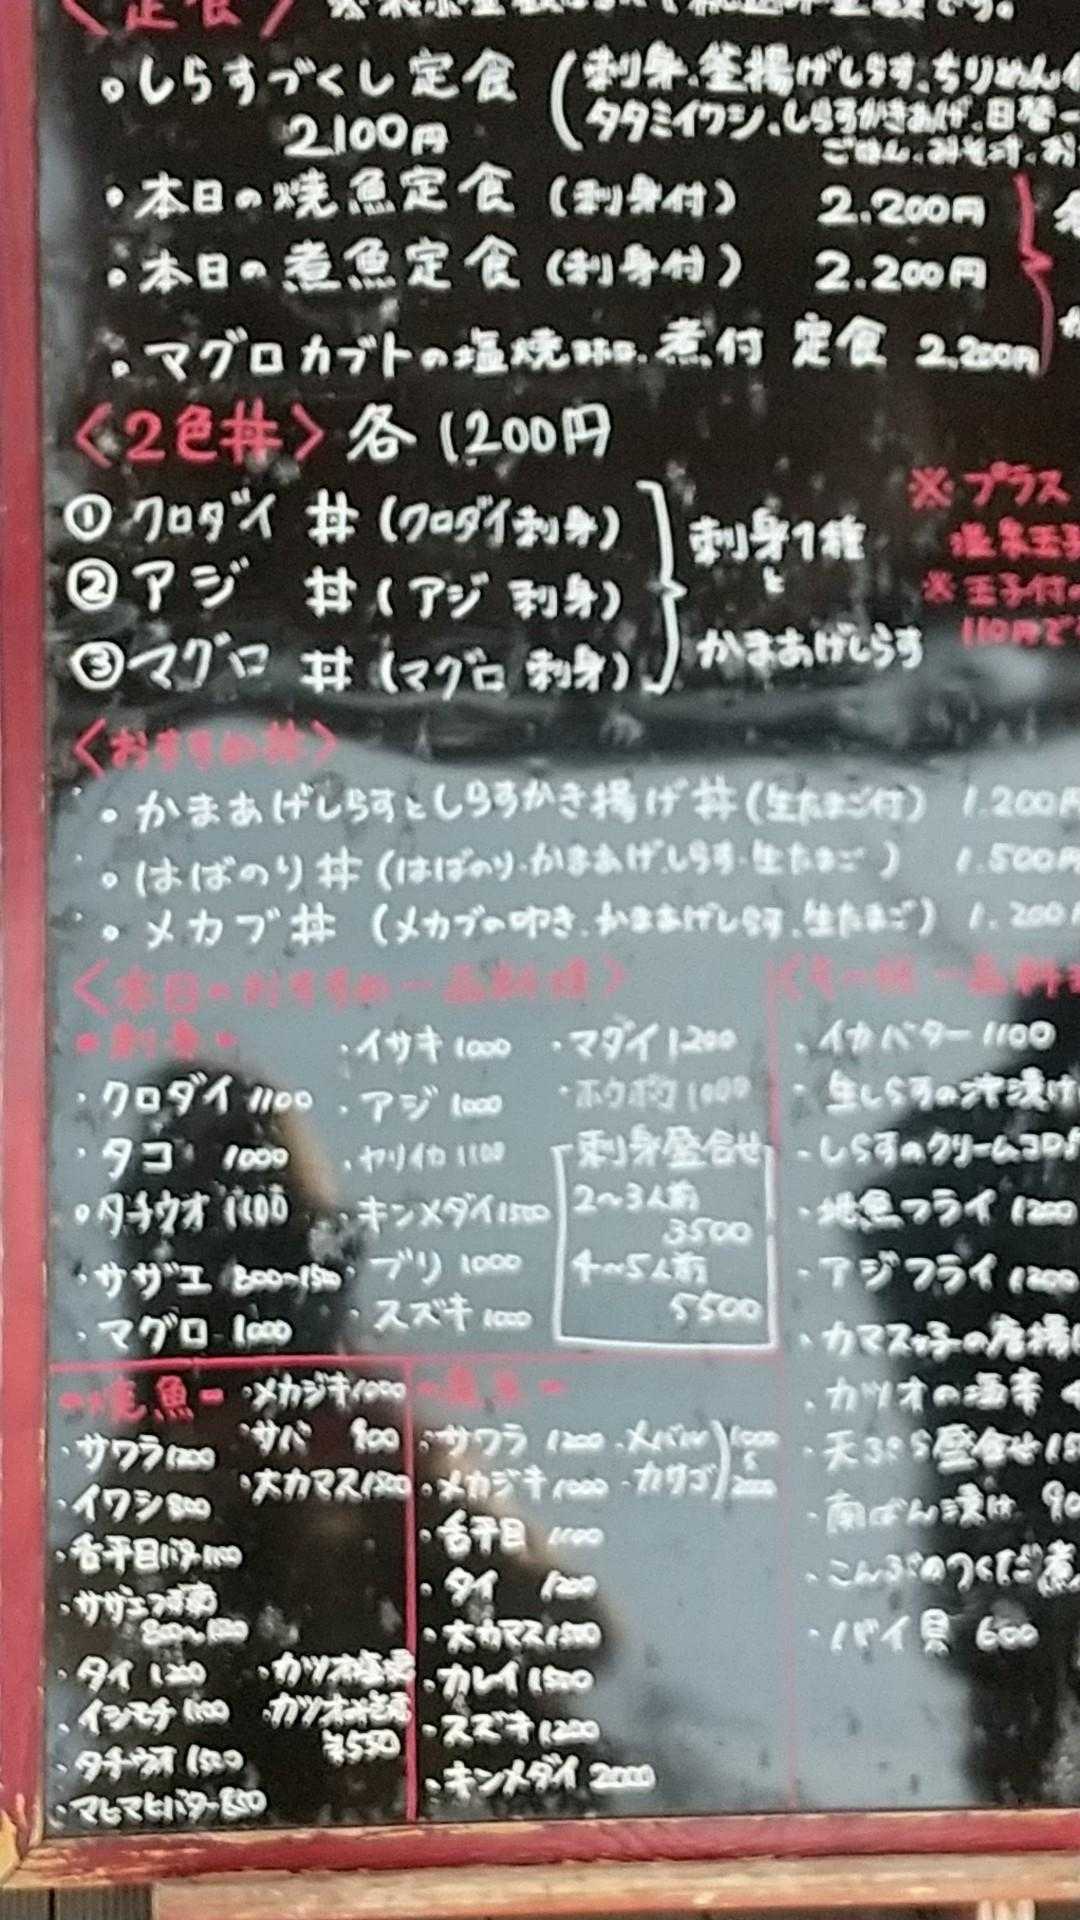 〈定食〉
・しらすづくし定食（刺身、釜揚げしらす、ちりめん
タタミイワシ、しらすかきあげ、日替一
2100円
ごはん、みそ汁、お
・本日の焼魚定食（刺身付） 2.200円
・本日の煮魚定食（刺身付） 2.200円
・マグロカブトの塩焼 or 煮付 定食 2.200円
〈2色丼〉各1200円
①クロダイ丼（クロダイ刺身）
②アジ丼（アジ刺身）
③マグロ丼（マグロ刺身）
刺身1種
と
かまあげしらす
※プラス
温泉玉子
※玉子付の
110円で
〈おすすめ丼〉
・かまあげしらすとしらすかき揚げ丼（生たまご付） 1.200円
・はばのり丼（はばのり・かまあげしらす・生たまご） 1.500円
・メカブ丼（メカブの叩き、かまあげしらす、生たまご） 1.200
〈本日のおすすめ一品料理〉
-刺身-
・クロダイ 1100
・タコ 1000
・タチウオ 1100
・サザエ 800〜1500
・マグロ 1000
・イサキ 1000
・アジ 1000
・ヤリイカ 1100
・キンメダイ 1500
・ブリ 1000
・スズキ 1000
・マダイ 1200
・ホウボウ 1000
刺身盛合せ
2〜3人前
3500
4〜5人前
5500
-焼魚-
・サワラ 1200
・イワシ 800
・舌平目バター 1100
・サザエつぼ焼
800〜1500
・タイ 1200
・イシモチ 1100
・タチウオ 1500
・マヒマヒバター 850
・メカジキ 1000
・サバ 900
・大カマス 1500
・カツオ塩焼
・カツオ
¥550
-煮魚-
・サワラ 1200
・メカジキ 1000
・舌平目 1100
・タイ 1200
・大カマス 1500
・カレイ 1500
・スズキ 1200
・キンメダイ 2000
・メバル
・カサゴ
1000
〜
2000
・イカバター 1100
・生しらすの沖漬け
・しらすのクリームコロッ
・地魚フライ 1200
・アジフライ 1200
・カマスっ子の唐揚げ
・カツオの酒辛
・天ぷら盛合せ 15
・南ばん漬け 90
・こんぶのつくだ煮
・バイ貝 600